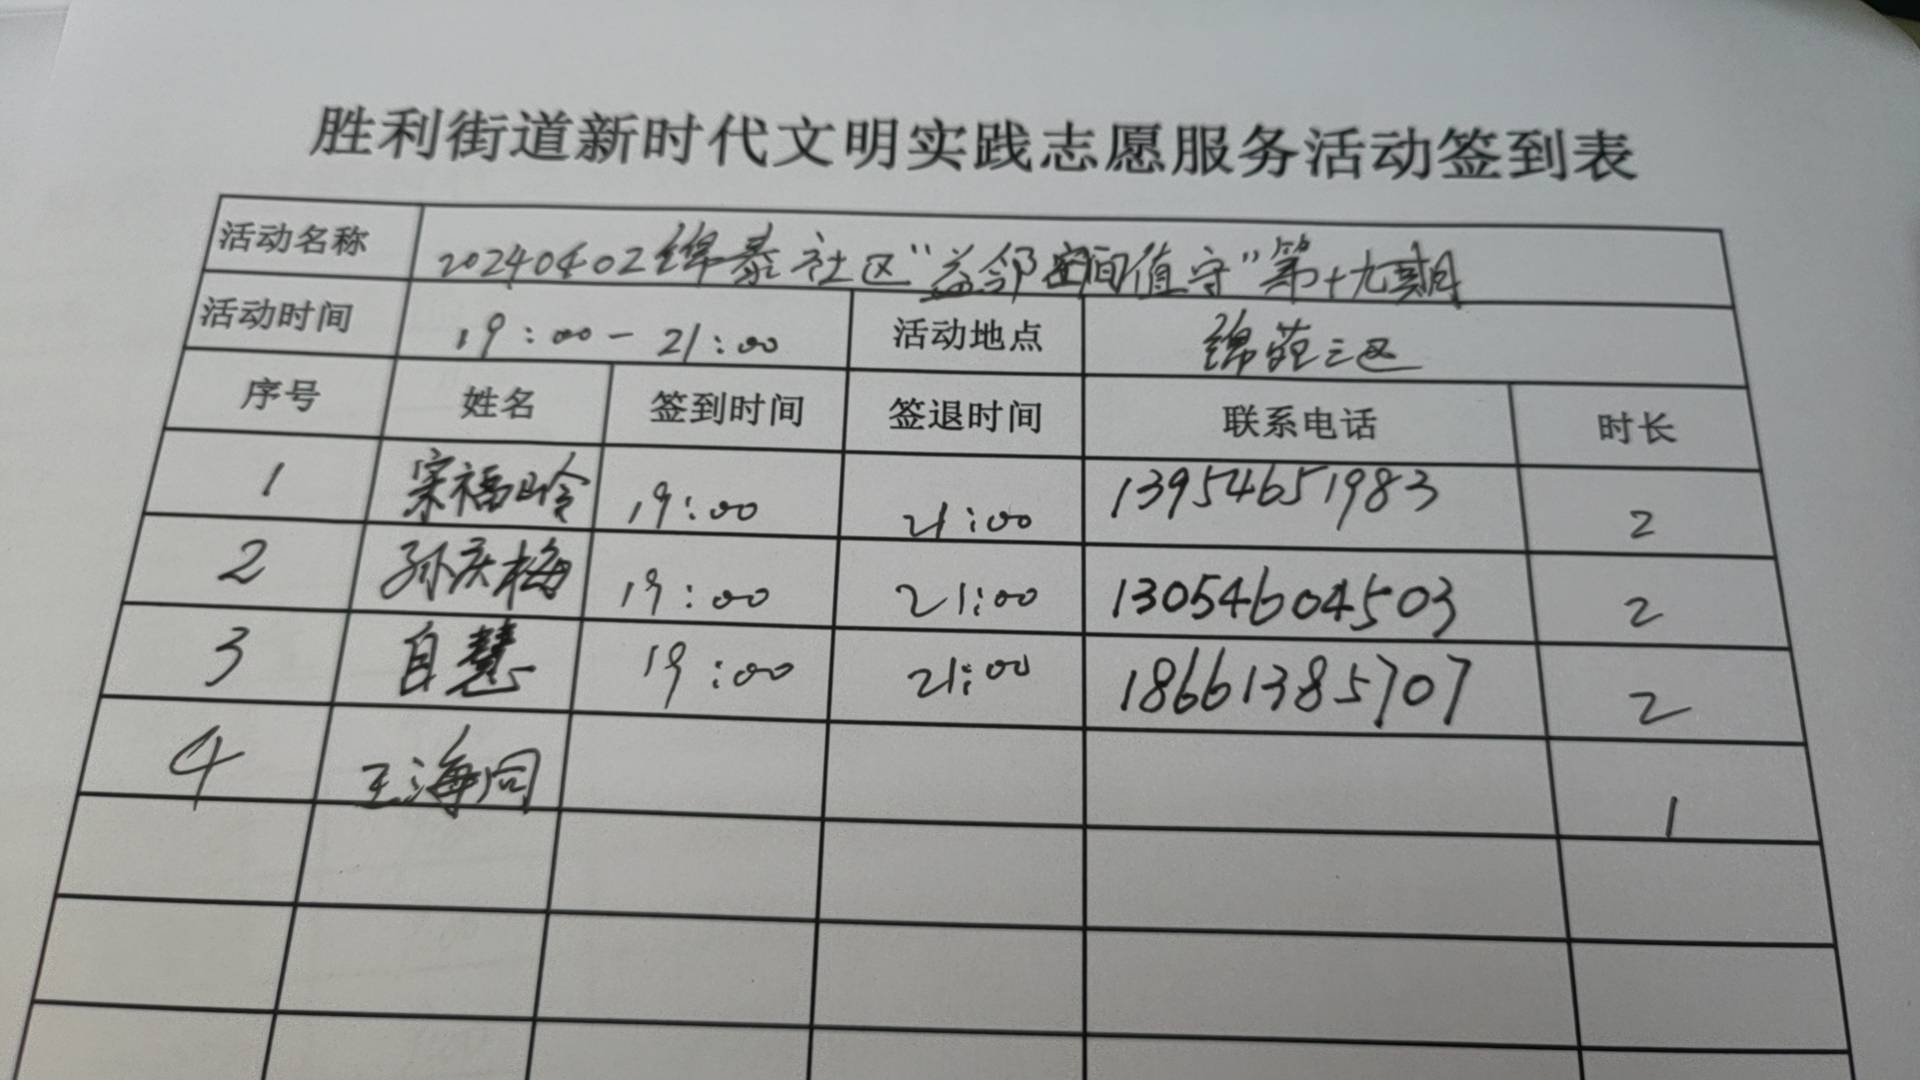 胜利街道新时代文明实践志愿服务活动签到表
活动名称 20240402锦泰社区“益邻空间值守”第十九期
活动时间 19:00-21:00 活动地点 锦苑三区
序号 姓名 签到时间 签退时间 联系电话 时长
1 宋福玲 19:00 21:00 13954651983 2
2 孙庆梅 19:00 21:00 13054604503 2
3 自慧 19:00 21:00 18661385707 2
4 王海同 1